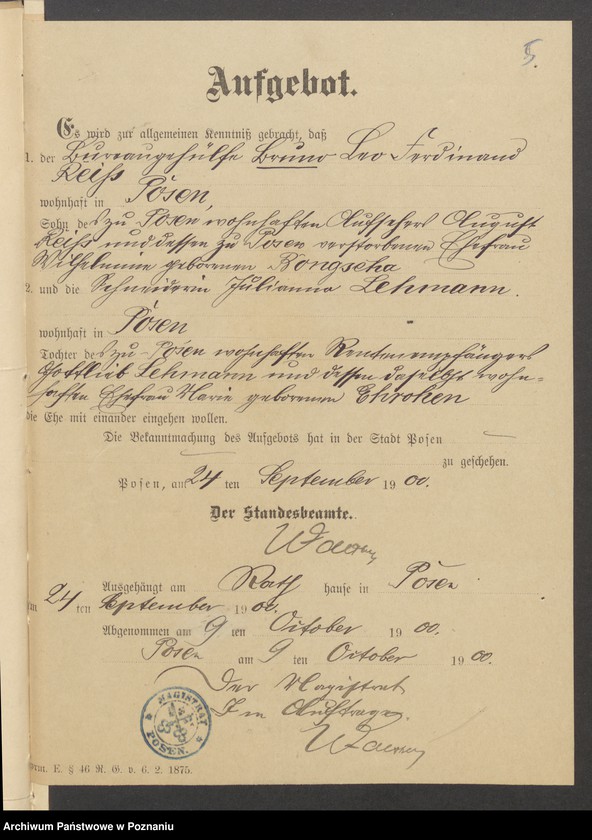 5.
Aufgebot.
Es wird zur allgemeinen Kenntniß gebracht, daß
1. der Bureaugehülfe Bruno Leo Ferdinand
Reiss
wohnhaft in Posen,
Sohn des zu Posen wohnhaften Aufsehers August
Reiss und dessen zu Posen verstorbenen Ehefrau
Wilhelmine geborenen Bongscha
2. und die Schneiderin Julianna Lehmann.
wohnhaft in Posen
Tochter des zu Posen wohnhaften Rentenempfängers
Gottlieb Lehmann und dessen daselbst wohn=
haften Ehefrau Marie geborenen
die Ehe mit einander eingehen wollen.
Die Bekanntmachung des Aufgebots hat in der Stadt Posen
zu geschehen.
Posen, am 24 ten September 1900.
Der Standesbeamte.
Ausgehängt am Rathhause in Posen
am 24 ten September 1900.
Abgenommen am 9 ten October 1900.
Posen am 9 ten October 1900.
Der Magistrat
Im Auftrage.
MAGISTRAT
POSEN.
Form. E. § 46 R. G. v. 6. 2. 1875.
Archiwum Państwowe w Poznaniu